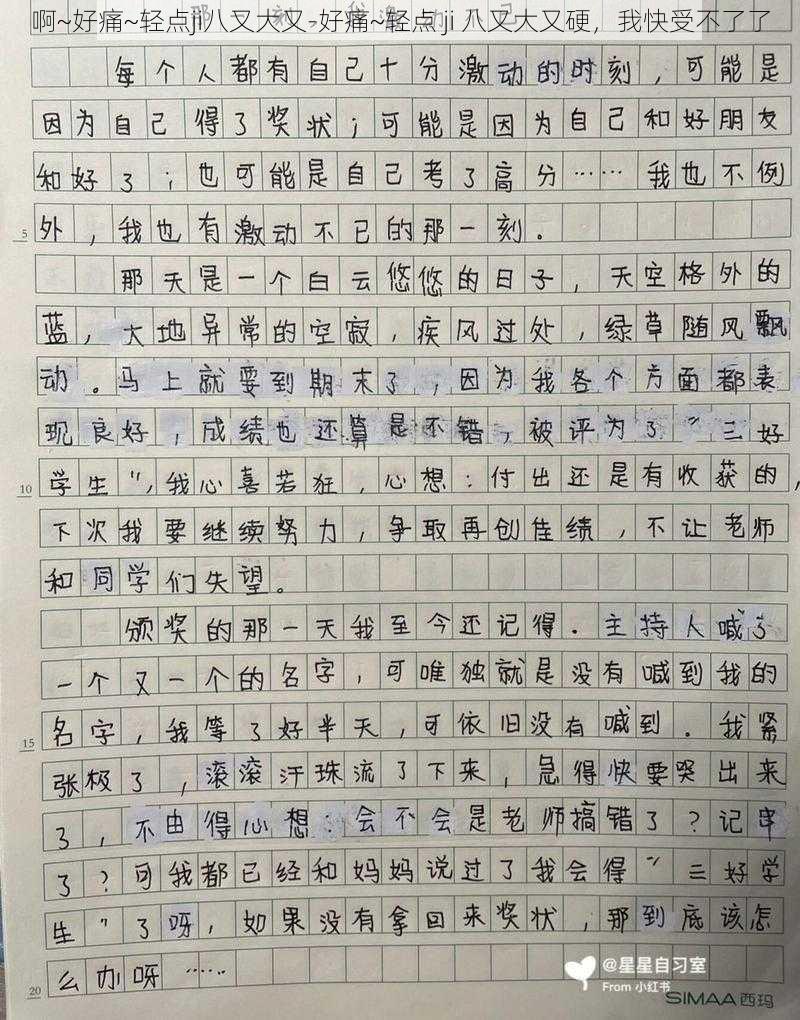 啊~好痛~轻点ji八叉大又-好痛~轻点 ji 八叉大又硬，我快受不了了
每个人都有自己十分激动的时刻，可能是
因为自己得了奖状；可能是因为自己和好朋友
和好了；也可能是自己考了高分……我也不例
5
外，我也有激动不已的那一刻。
那天是一个白云悠悠的日子，天空格外的
蓝，大地异常的空寂，疾风过处，绿草随风飘
动。马上就要到期末了，因为我各个方面都表
现良好，成绩也还算是还不错，被评为了“三好
10
学生”，我心喜若狂，心想：付出还是有收获的，
下次我要继续努力，争取再创佳绩，不让老师
和同学们失望。
颁奖的那一天我至今还记得．主持人喊了
一个又一个的名字，可唯独就是没有喊到我的
15
名字，我等了好半天，可依旧没有喊到。我紧
张极了，滚滚汗珠流了下来，急得快要哭出来
了，不由得心想：会不会是老师搞错了？记串
了？可我都已经和妈妈说过了我会得“三好学
生”了呀，如果没有拿回来奖状，那到底该怎
20
么办呀……
@星星自习室
From 小红书
SIMAA西玛